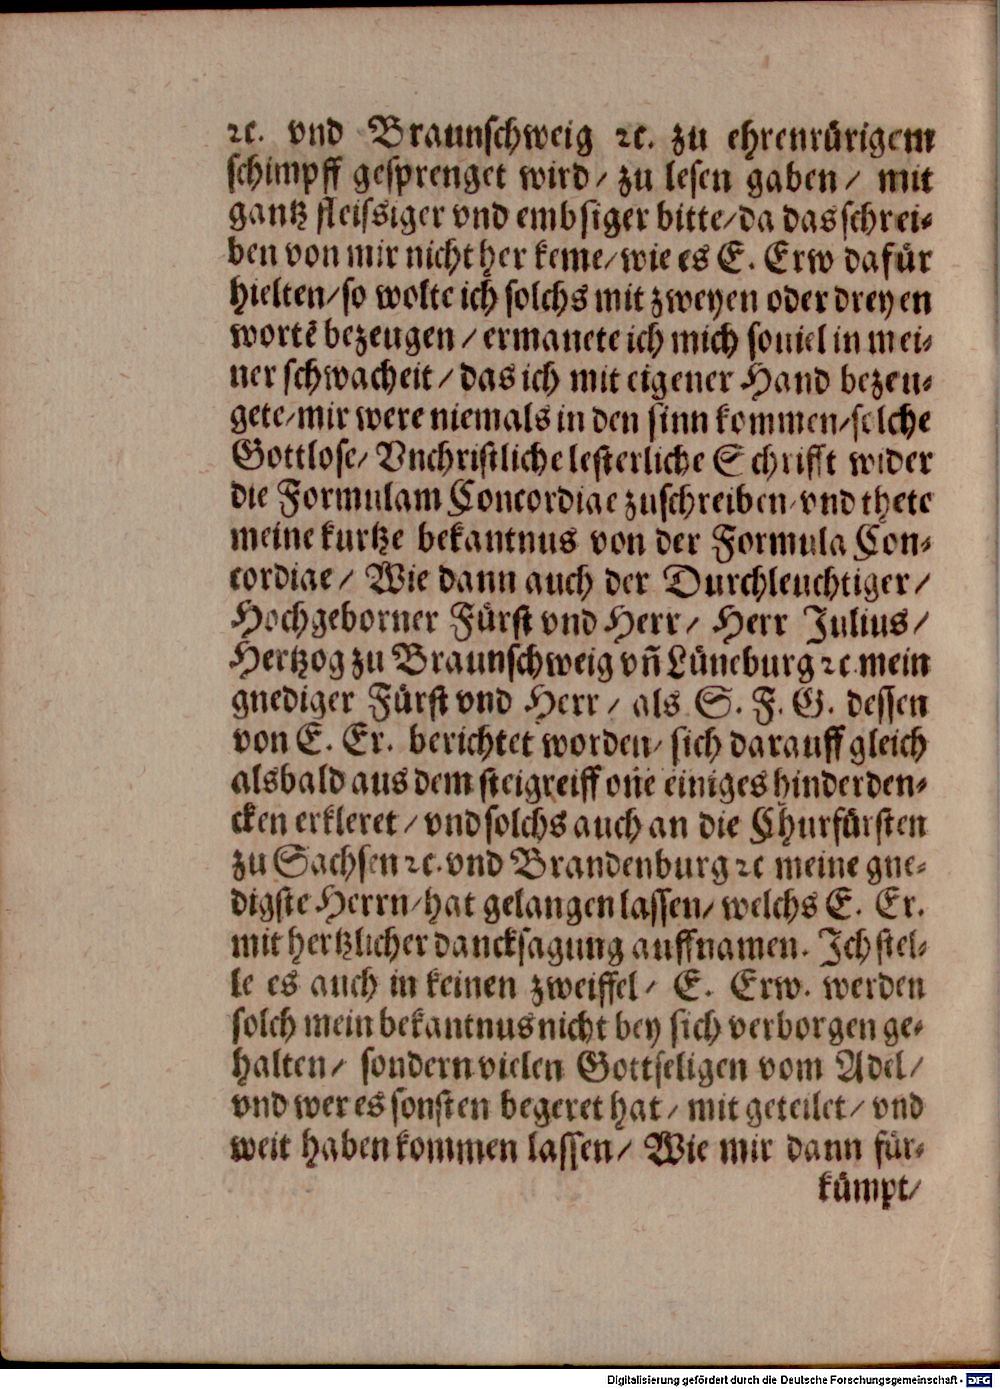 ꝛc. vnd Braunschweig ꝛc. zu ehrenrůrigem
schimpff gesprenget wird/ zu lesen gaben/ mit
gantz fleissiger vnd embsiger bitte/da das schrei⸗
ben von mir nicht her keme/wie es E. Erw dafůr
hielten/so wolte ich solchs mit zweyen oder dreyen
wortē bezeugen/ ermanete ich mich souiel in mei⸗
ner schwacheit/ das ich mit eigener Hand bezeu⸗
gete/mir were niemals in den sinn kommen/solche
Gottlose/ Vnchristliche lesterliche Schrifft wider
die Formulam Concordiae zuschreiben/vnd thete
meine kurtze bekantnus von der Formula Con⸗
cordiae/ Wie dann auch der Durchleuchtiger/
Hochgeborner Fůrst vnd Herr/ Herr Julius/
Hertzog zu Braunschweig vñ Lůneburg ꝛc. mein
gnediger Fůrst vnd Herr/ als S. F. G. dessen
von E. Er. berichtet worden/ sich darauff gleich
alsbald aus dem steigreiff oñe einiges hinderden⸗
cken erkleret/ vnd solchs auch an die Churfůrsten
zu Sachsen ꝛc. vnd Brandenburg ꝛc meine gne⸗
digste Herrn/hat gelangen lassen/ welchs E. Er.
mit hertzlicher dancksagung auffnamen. Ich stel⸗
le es auch in keinen zweiffel/ E. Erw. werden
solch mein bekantnus nicht bey sich verborgen ge⸗
halten/ sondern vielen Gottseligen vom Adel/
vnd wer es sonsten begeret hat/ mit geteilet/ vnd
weit haben kommen lassen/ Wie mir dann fůr⸗
kůmpt/
Digitalisierung gefördert durch die Deutsche Forschungsgemeinschaft - DFG